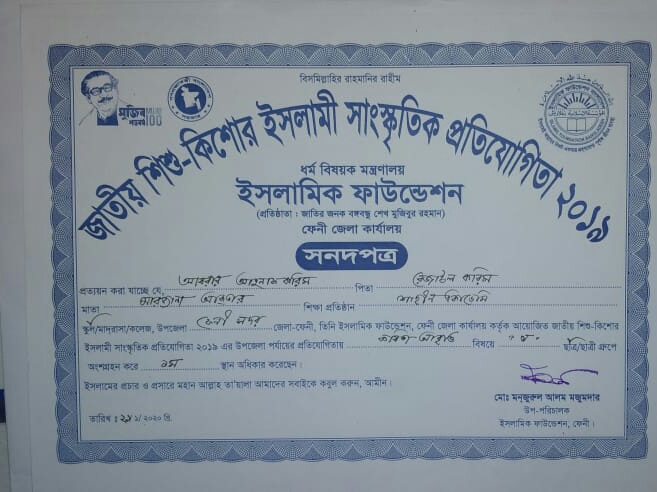 বিসমিল্লাহির রাহমানির রাহীম
মুজিব MUJIB
শতবর্ষ 100
জাতীয় শিশু-কিশোর ইসলামী সাংস্কৃতিক প্রতিযোগিতা ২০১৯
ধর্ম বিষয়ক মন্ত্রণালয়
ইসলামিক ফাউন্ডেশন
(প্রতিষ্ঠাতা : জাতির জনক বঙ্গবন্ধু শেখ মুজিবুর রহমান)
ফেনী জেলা কার্যালয়
সনদপত্র
প্রত্যয়ন করা যাচ্ছে যে, আবরার করিম পিতা রেজাউল করিম
মাতা আক্তার শিক্ষা প্রতিষ্ঠান শাহীন একাডেমি
স্কুল/মাদ্রাসা/কলেজ, উপজেলা ফেনী সদর জেলা-ফেনী, তিনি ইসলামিক ফাউন্ডেশন, ফেনী জেলা কার্যালয় কর্তৃক আয়োজিত জাতীয় শিশু-কিশোর
ইসলামী সাংস্কৃতিক প্রতিযোগিতা ২০১৯ এর উপজেলা পর্যায়ের প্রতিযোগিতায় আবৃত্তি বিষয়ে ছাত্র/ছাত্রী গ্রুপে
অংশগ্রহন করে ১ম স্থান অধিকার করেছেন।
ইসলামের প্রচার ও প্রসারে মহান আল্লাহ তা'য়ালা আমাদের সবাইকে কবুল করুন, আমীন।
মোঃ মনজুরুল আলম মজুমদার
উপ-পরিচালক
তারিখ : ২/২০২০ খ্রি.
ইসলামিক ফাউন্ডেশন, ফেনী।